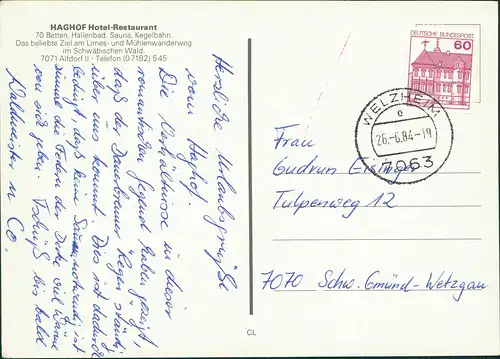 HAGHOF Hotel-Restaurant
70 Betten, Hallenbad, Sauna, Kegelbahn.
Das beliebte Ziel am Limes- und Mühlenwanderweg
im Schwäbischen Wald.
7071 Alfdorf II · Telefon (07182) 545
Herzliche Urlaubsgrüße
vom Haghof.
Die Verhältnisse in dieser
romantischen Gegend haben gezeigt,
daß der Regen ständig
über uns kommt. Dies ist dadurch
bedingt, daß keine Sauna notwendig ist
die Federn der Decke viel Wärme
von sich geben. Tschüß bis bald
u Co.
DEUTSCHE BUNDESPOST
60
WELZHEIM
e
26.-6.84-19
7063
Frau
Gudrun Eisinger
Tulpenweg 12
7070 Schw. Gmünd-Wetzgau
CL